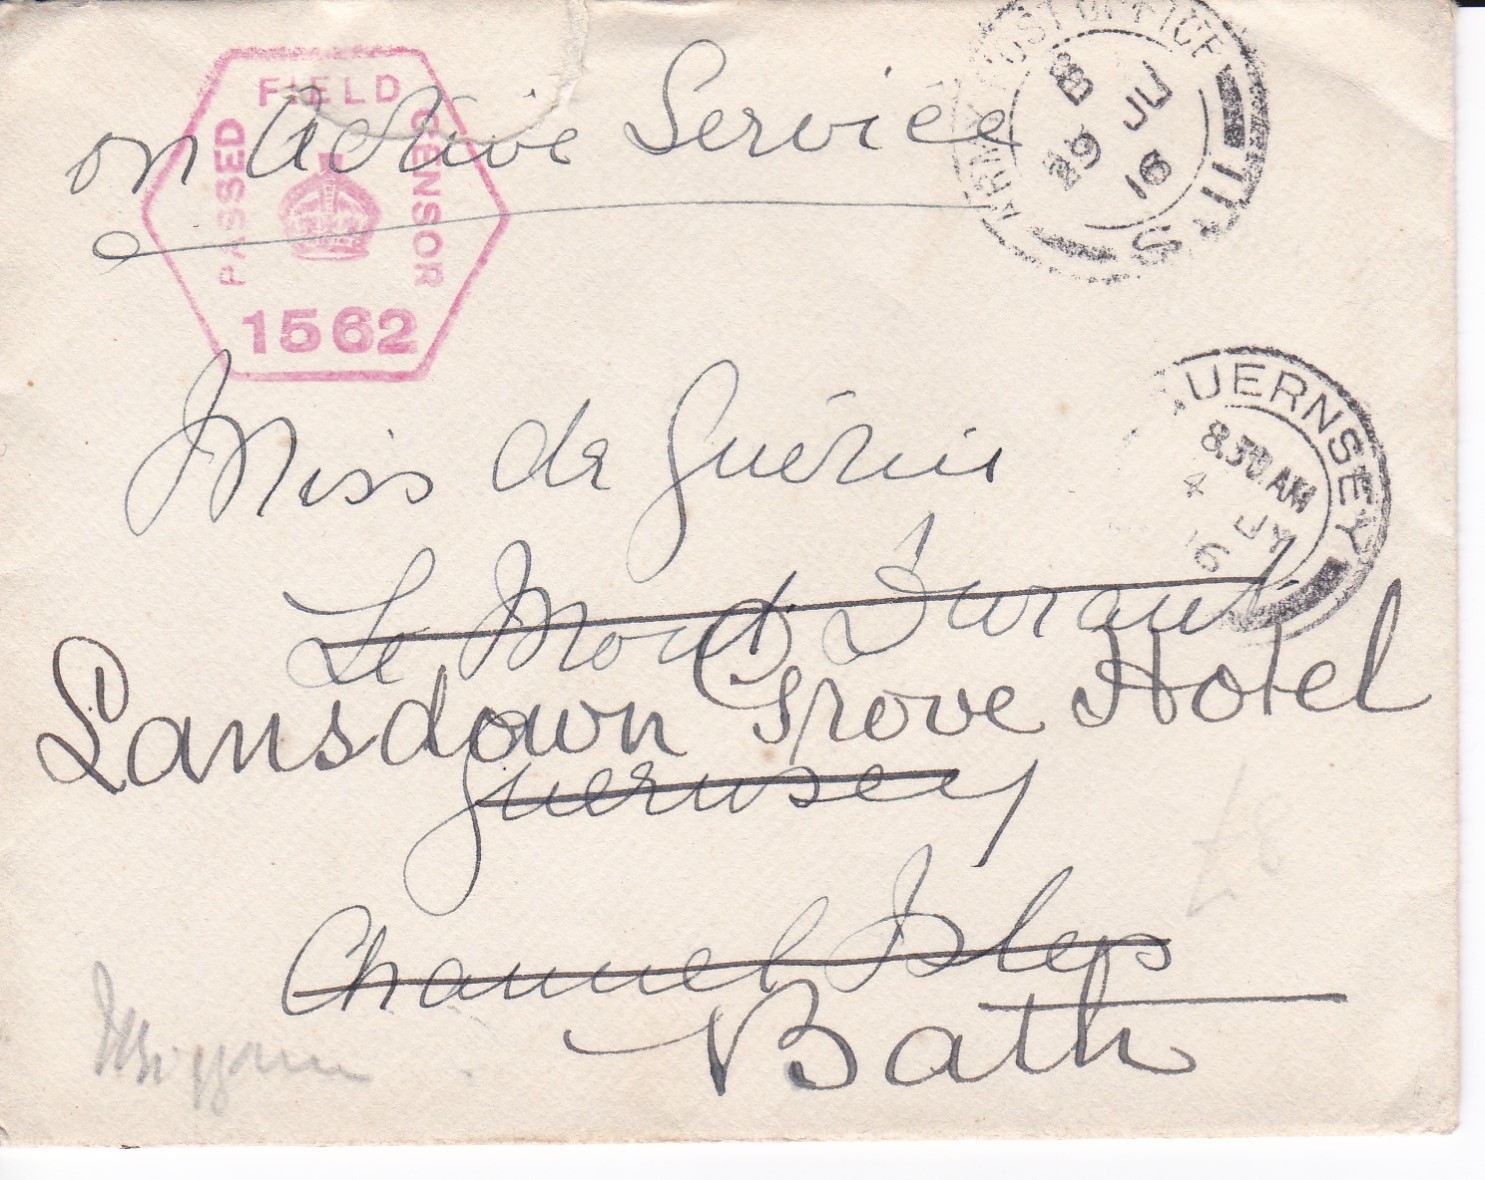 on Active Service
PASSED FIELD CENSOR
1562
ARMY POST OFFICE
B
29 JU
16
S.11
GUERNSEY
8.30 AM
4 JY
16
Miss de Guérin
Le Mont Durant
Lansdown Grove Hotel
Guernsey
Channel Isles
Bath